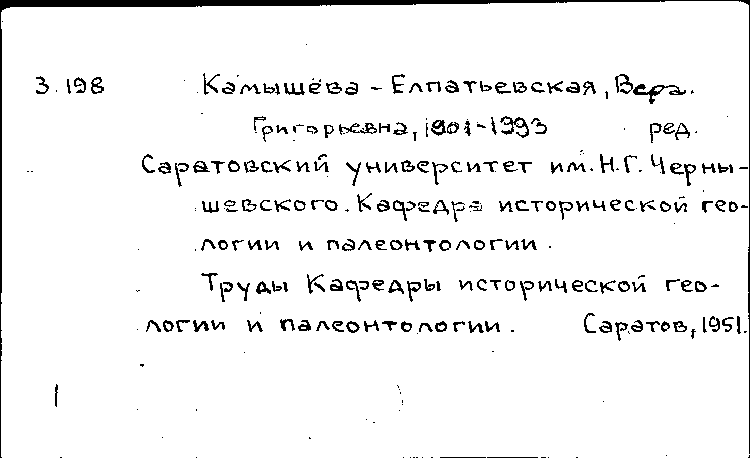 3.198 Камышёва - Елпатьевская, Вера
Григорьевна, 1901-1993 ред.
Саратовский университет им. Н.Г. Черны-
шевского. Кафедра исторической гео-
логии и палеонтологии.
Труды Кафедры исторической гео-
логии и палеонтологии. Саратов, 1951.